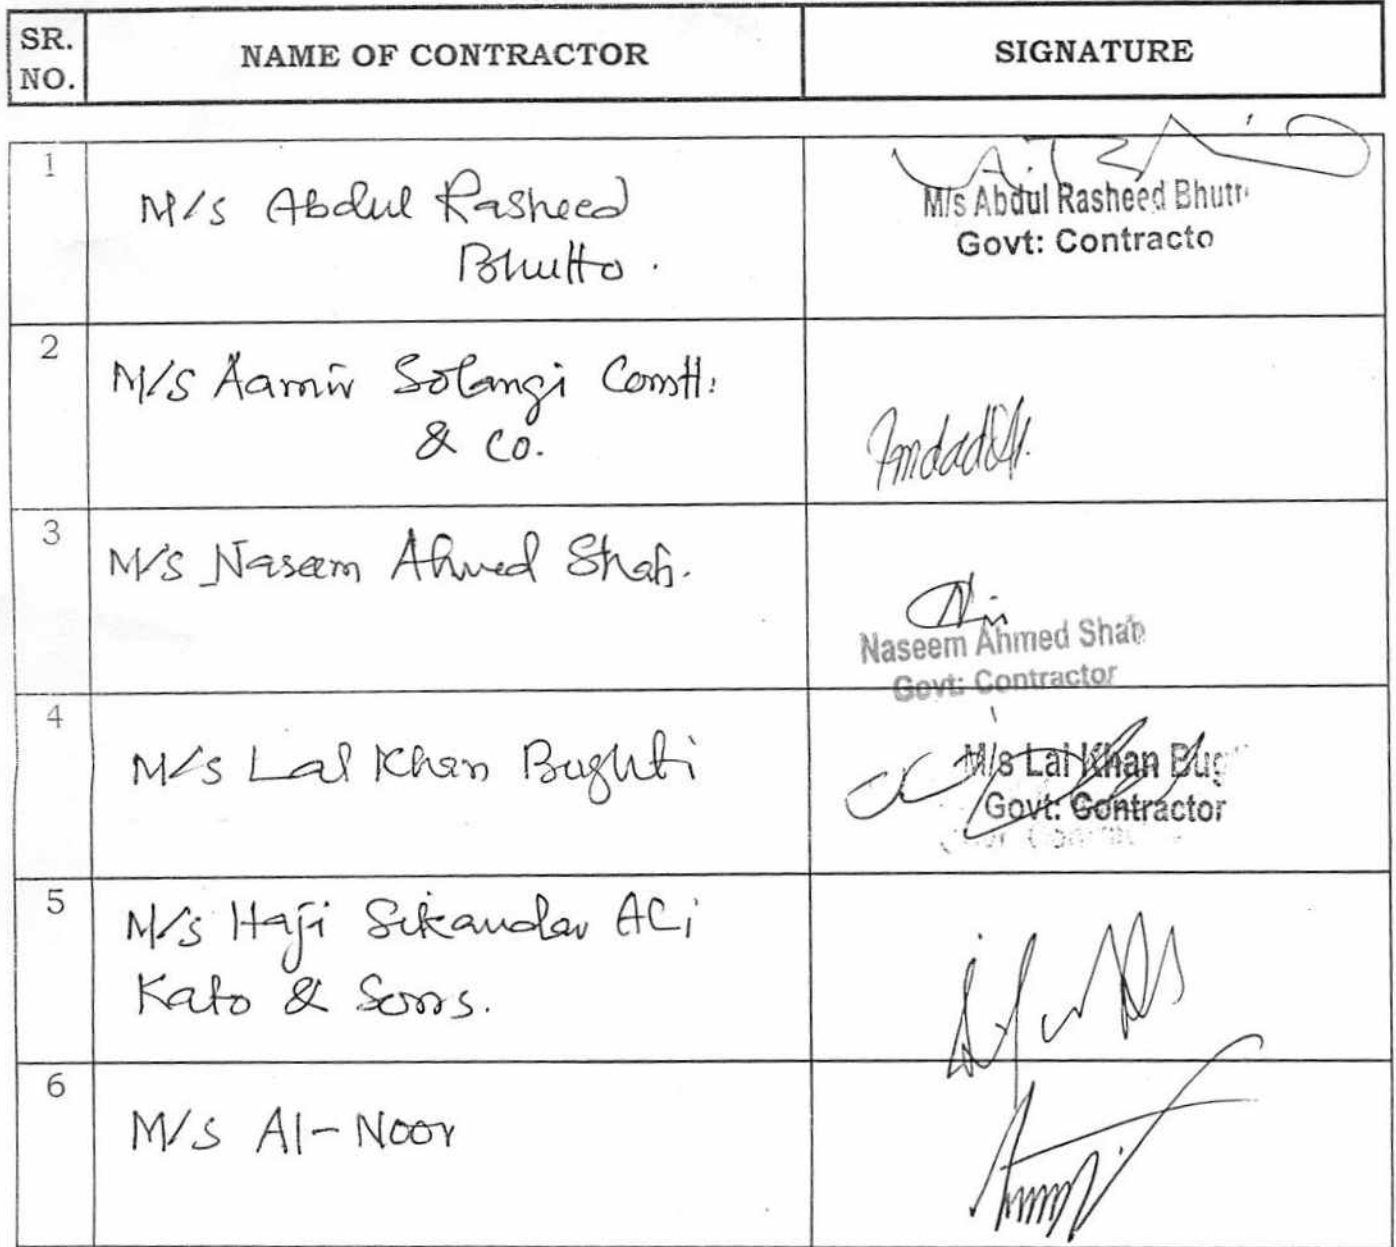 SR. NO.
NAME OF CONTRACTOR
SIGNATURE
1
M/s Abdul Rasheed
Bhutto.
M/s Abdul Rasheed Bhutt
Govt: Contracto
2
M/S Aamir Solangi Constt:
& Co.
3
M/s Naseem Ahmed Shah.
Naseem Ahmed Shah
Govt: Contractor
4
M/s Lal Khan Bughti
M/s Lal Khan Bug
Govt: Contractor
5
M/s Haji Sikandar Ali
Kato & Sons.
6
M/s Al-Noor